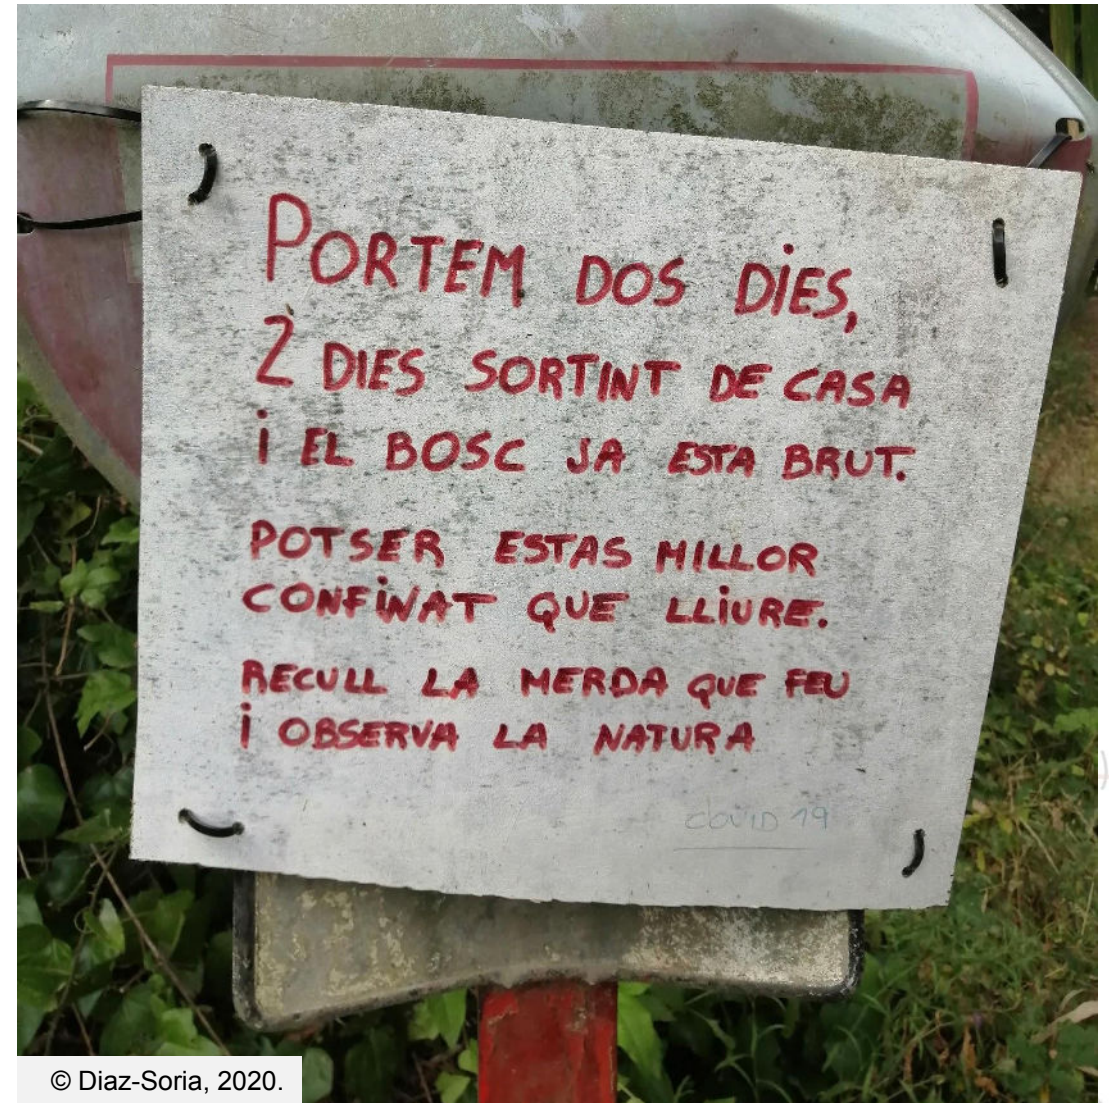 PORTEM DOS DIES,
2 DIES SORTINT DE CASA
i EL BOSC JA ESTA BRUT.
POTSER ESTAS MILLOR
CONFINAT QUE LLIURE.
RECULL LA MERDA QUE FEU
i OBSERVA LA NATURA
COVID 19
© Diaz-Soria, 2020.